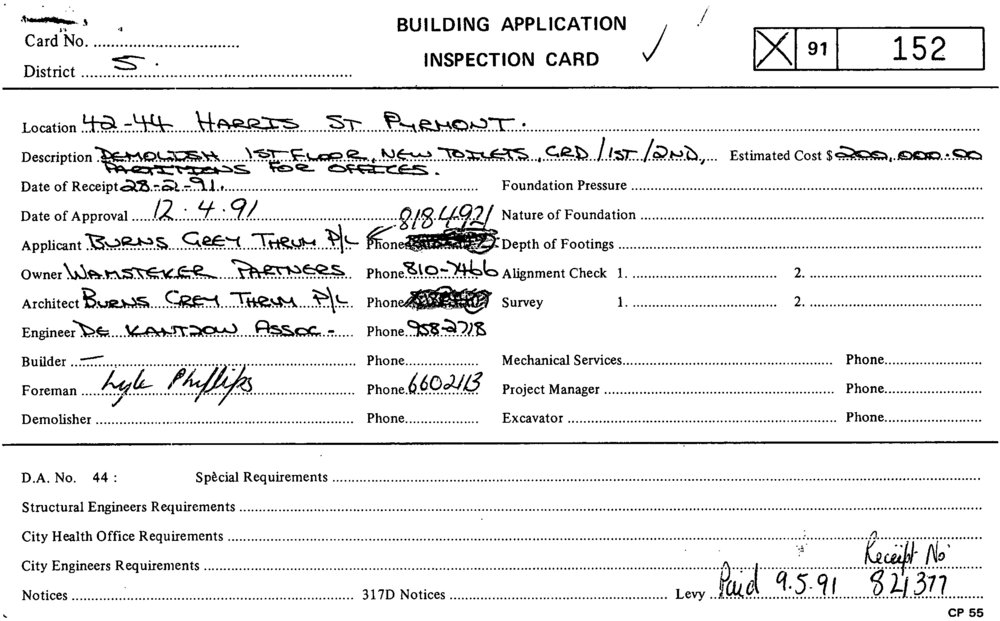 BUILDING APPLICATION
INSPECTION CARD
Card No.
District S.
91 152
Location 42-44 HARRIS ST PYRMONT.
Description DEMOLISH 1ST FLOOR, NEW TOILETS, GRD/1ST/2ND, Estimated Cost $200,000.00
PARTITIONS FOR OFFICES.
Date of Receipt 28-2-91. Foundation Pressure
Date of Approval 12.4.91 818 4921 Nature of Foundation
Applicant BURNS GREY THRUM P/L Phone Depth of Footings
Owner WAMSTEKER PARTNERS Phone 810-7466 Alignment Check 1. 2.
Architect BURNS GREY THRUM P/L Phone Survey 1. 2.
Engineer DE KANTZOW ASSOC- Phone 958-2718
Builder — Phone Mechanical Services Phone
Foreman Lyle Phillips Phone 6602113 Project Manager Phone
Demolisher Phone Excavator Phone
D.A. No. 44: Special Requirements
Structural Engineers Requirements
City Health Office Requirements
City Engineers Requirements Receipt No
Notices 317D Notices Levy Paid 9.5.91 821377
CP 55